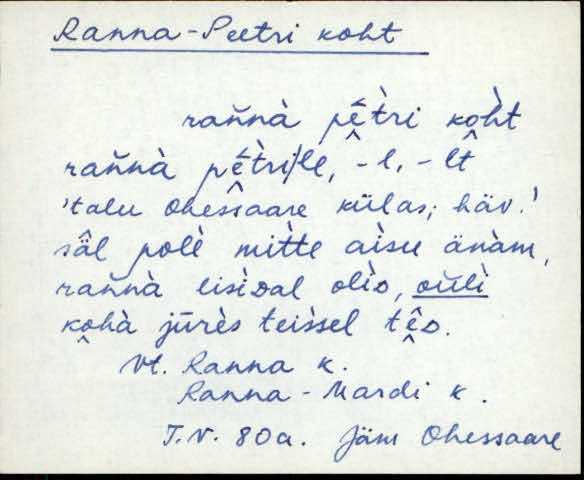 Ranna-Peetri koht
rañnà pḙ̄̀tri ko̭h̀t
rañnà pḙ̄̀tri/le, -l, -lt
'talu Ohessaare külas; häv.'
säl polè mit̀te aìsu änàm,
rañnà eisiᴅal olìᴅ, oùlì
ko̭hà jūrès teis̀sel tḙ̄ᴅ.
vt. Ranna k.
Ranna-Mardi k.
T.N. 80a. Jäm Ohessaare